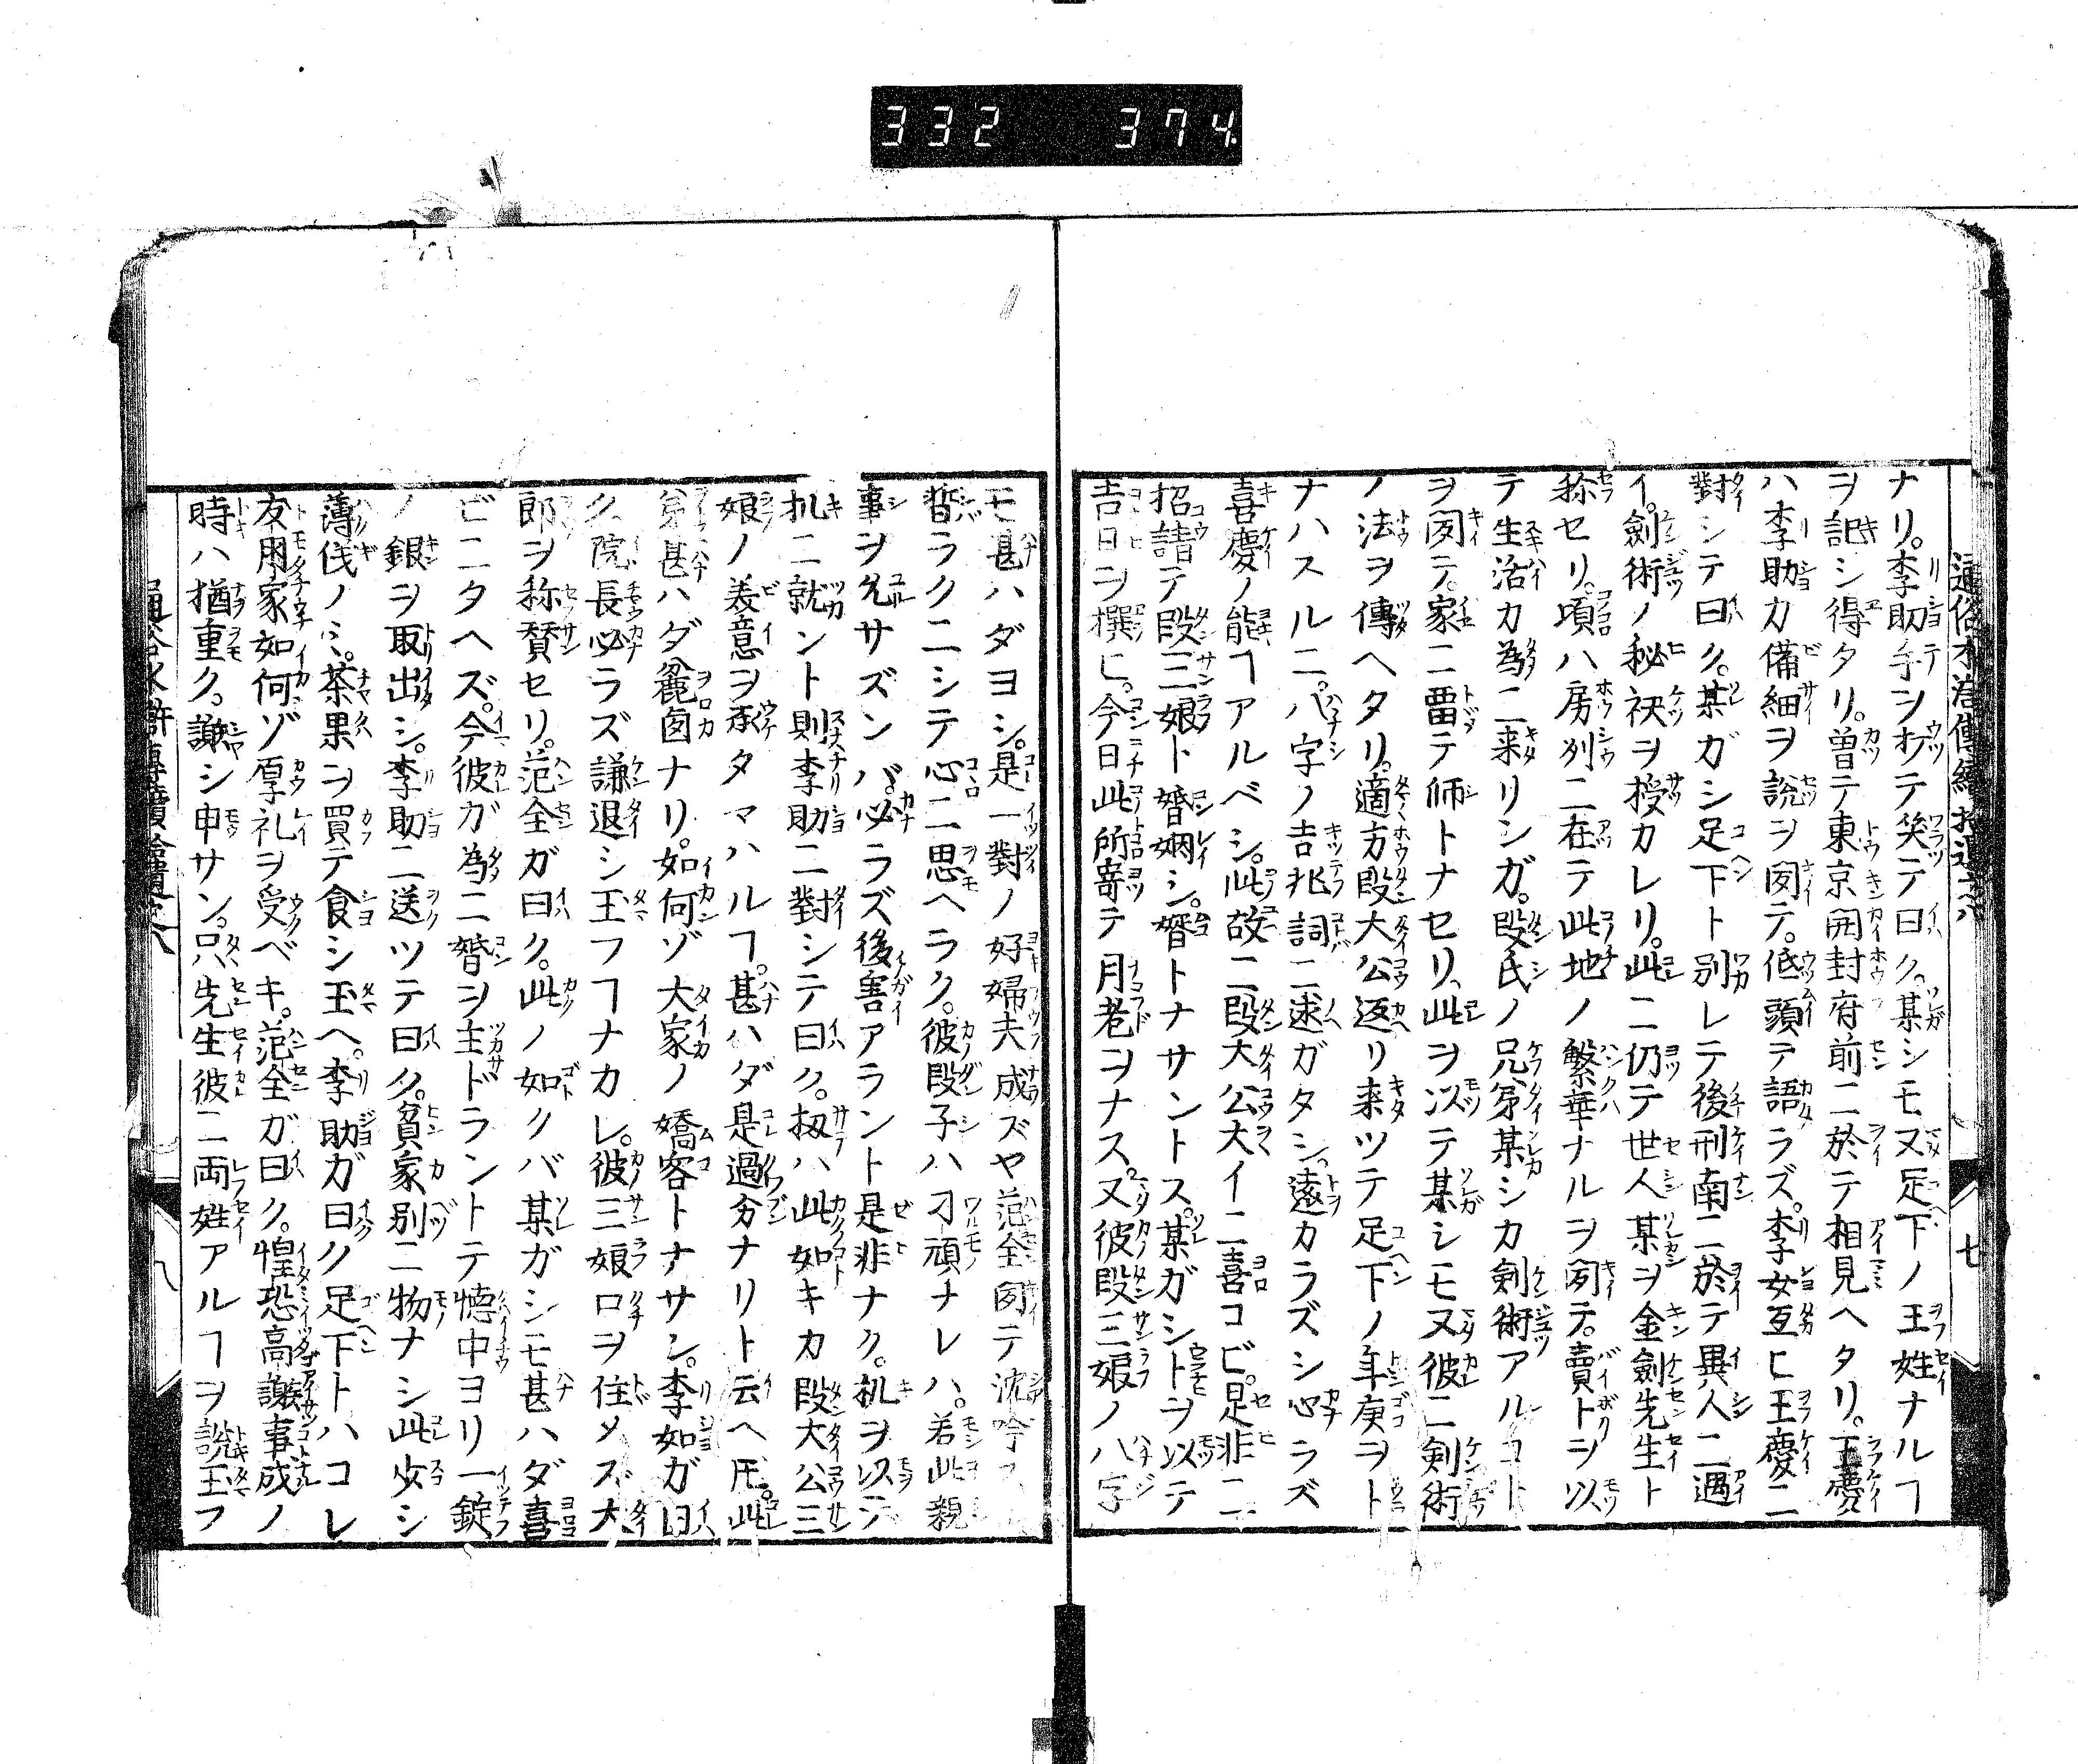 332 374
通俗水滸傳續拾遺六
七
ナリ。李助手ヲオテ笑テ曰ク。某シモ又足下ノ王姓ナルヿ
ヲ記シ得タリ。曽テ東京開封府前ニ於テ相見ヘタリ。王慶
ハ李助カ備細ヲ説ヲ聞テ。低頭テ語ラズ。李女互ヒ王慶ニ
對シテ曰ク。某ガシ足下ト別レテ後刑南ニ於テ異人ニ遇
イ。劍術ノ秘袂ヲ授カレリ。此ニ仍テ世人某ヲ金劍先生ト
称セリ。項ハ房刕ニ在テ此地ノ繁華ナルヲ聞テ。賣トヲ以
テ生活カ為ニ来リシガ。段氏ノ兄弟某シカ剣術アルコト
ヲ聞テ。家ニ畱テ師トナセリ。此ヲ以テ某シモ又彼ニ剣術
ノ法ヲ傳ヘタリ。適方段大公返リ来ツテ足下ノ年庚ヲト
ナハスルニ。八字ノ吉兆詞ニ述ガタシ。遠カラズシ心ラズ
喜慶ノ能ヿアルベシ。此故ニ段大公大イニ喜コビ。足非ニ
招請テ段三娘ト婚姻シ。婿トナサントス。某ガシトヲ以テ
吉日ヲ撰ヒ。今日此所寄テ月老ヲナス。又彼段三娘ノ八字
モ甚ハダヨシ。是一對ノ好婦夫成ズヤ范全聞テ沈吟ス
暫ラクニシテ心ニ思ヘラク。彼段子ハ刁頑ナレハ。若此親
事ヲ允サズンバ。必ラズ後害アラント是非ナク。机ヲ以テ
机ニ就ント則李助ニ對シテ曰ク。扨ハ此如キカ段大公三
娘ノ美意ヲ承タマハルヿ。甚ハダ是過分ナリト云ヘ𪜈。此
弟甚ハダ麁鹵ナリ。如何ゾ大家ノ嬌客トナサン。李如ガ曰
ク院長必ラズ謙退シ玉フヿナカレ。彼三娘口ヲ住メズ大
郎ヲ称賛セリ。范全ガ曰ク。此ノ如クバ某ガシモ甚ハダ喜
ビニタヘズ。今彼ガ為ニ婚ヲ主ドラントテ懐中ヨリ一錠
ノ銀ヲ取出シ。李助ニ送ツテ曰ク。貧家別ニ物ナシ此少シ
薄伐ノミ。茶果ヲ買テ食シ玉ヘ。李助ガ曰ク足下トハコレ
友用家如何ゾ厚礼ヲ受ベキ。范全ガ曰ク。惶恐高謝事成ノ
時ハ猶重ク。謝シ申サン。只先生彼ニ両姓アルヿヲ説玉フ
通俗水滸傳續拾遺六
八